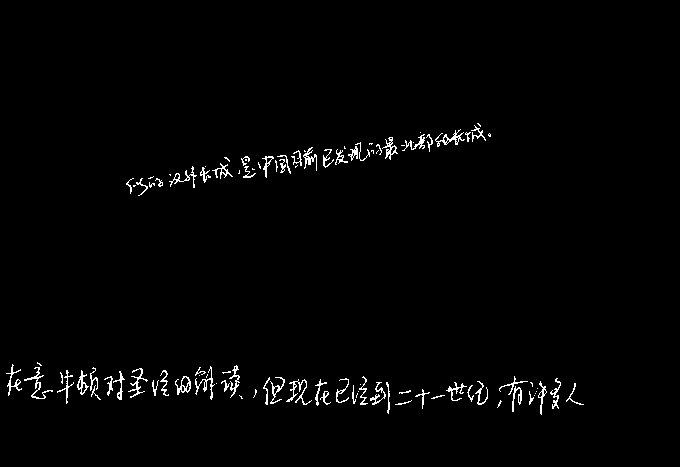 的汉外长城,是中国目前已发现的最北部的长城。
在意牛顿对圣经的解读,但现在已经到二十一世纪,有许多人